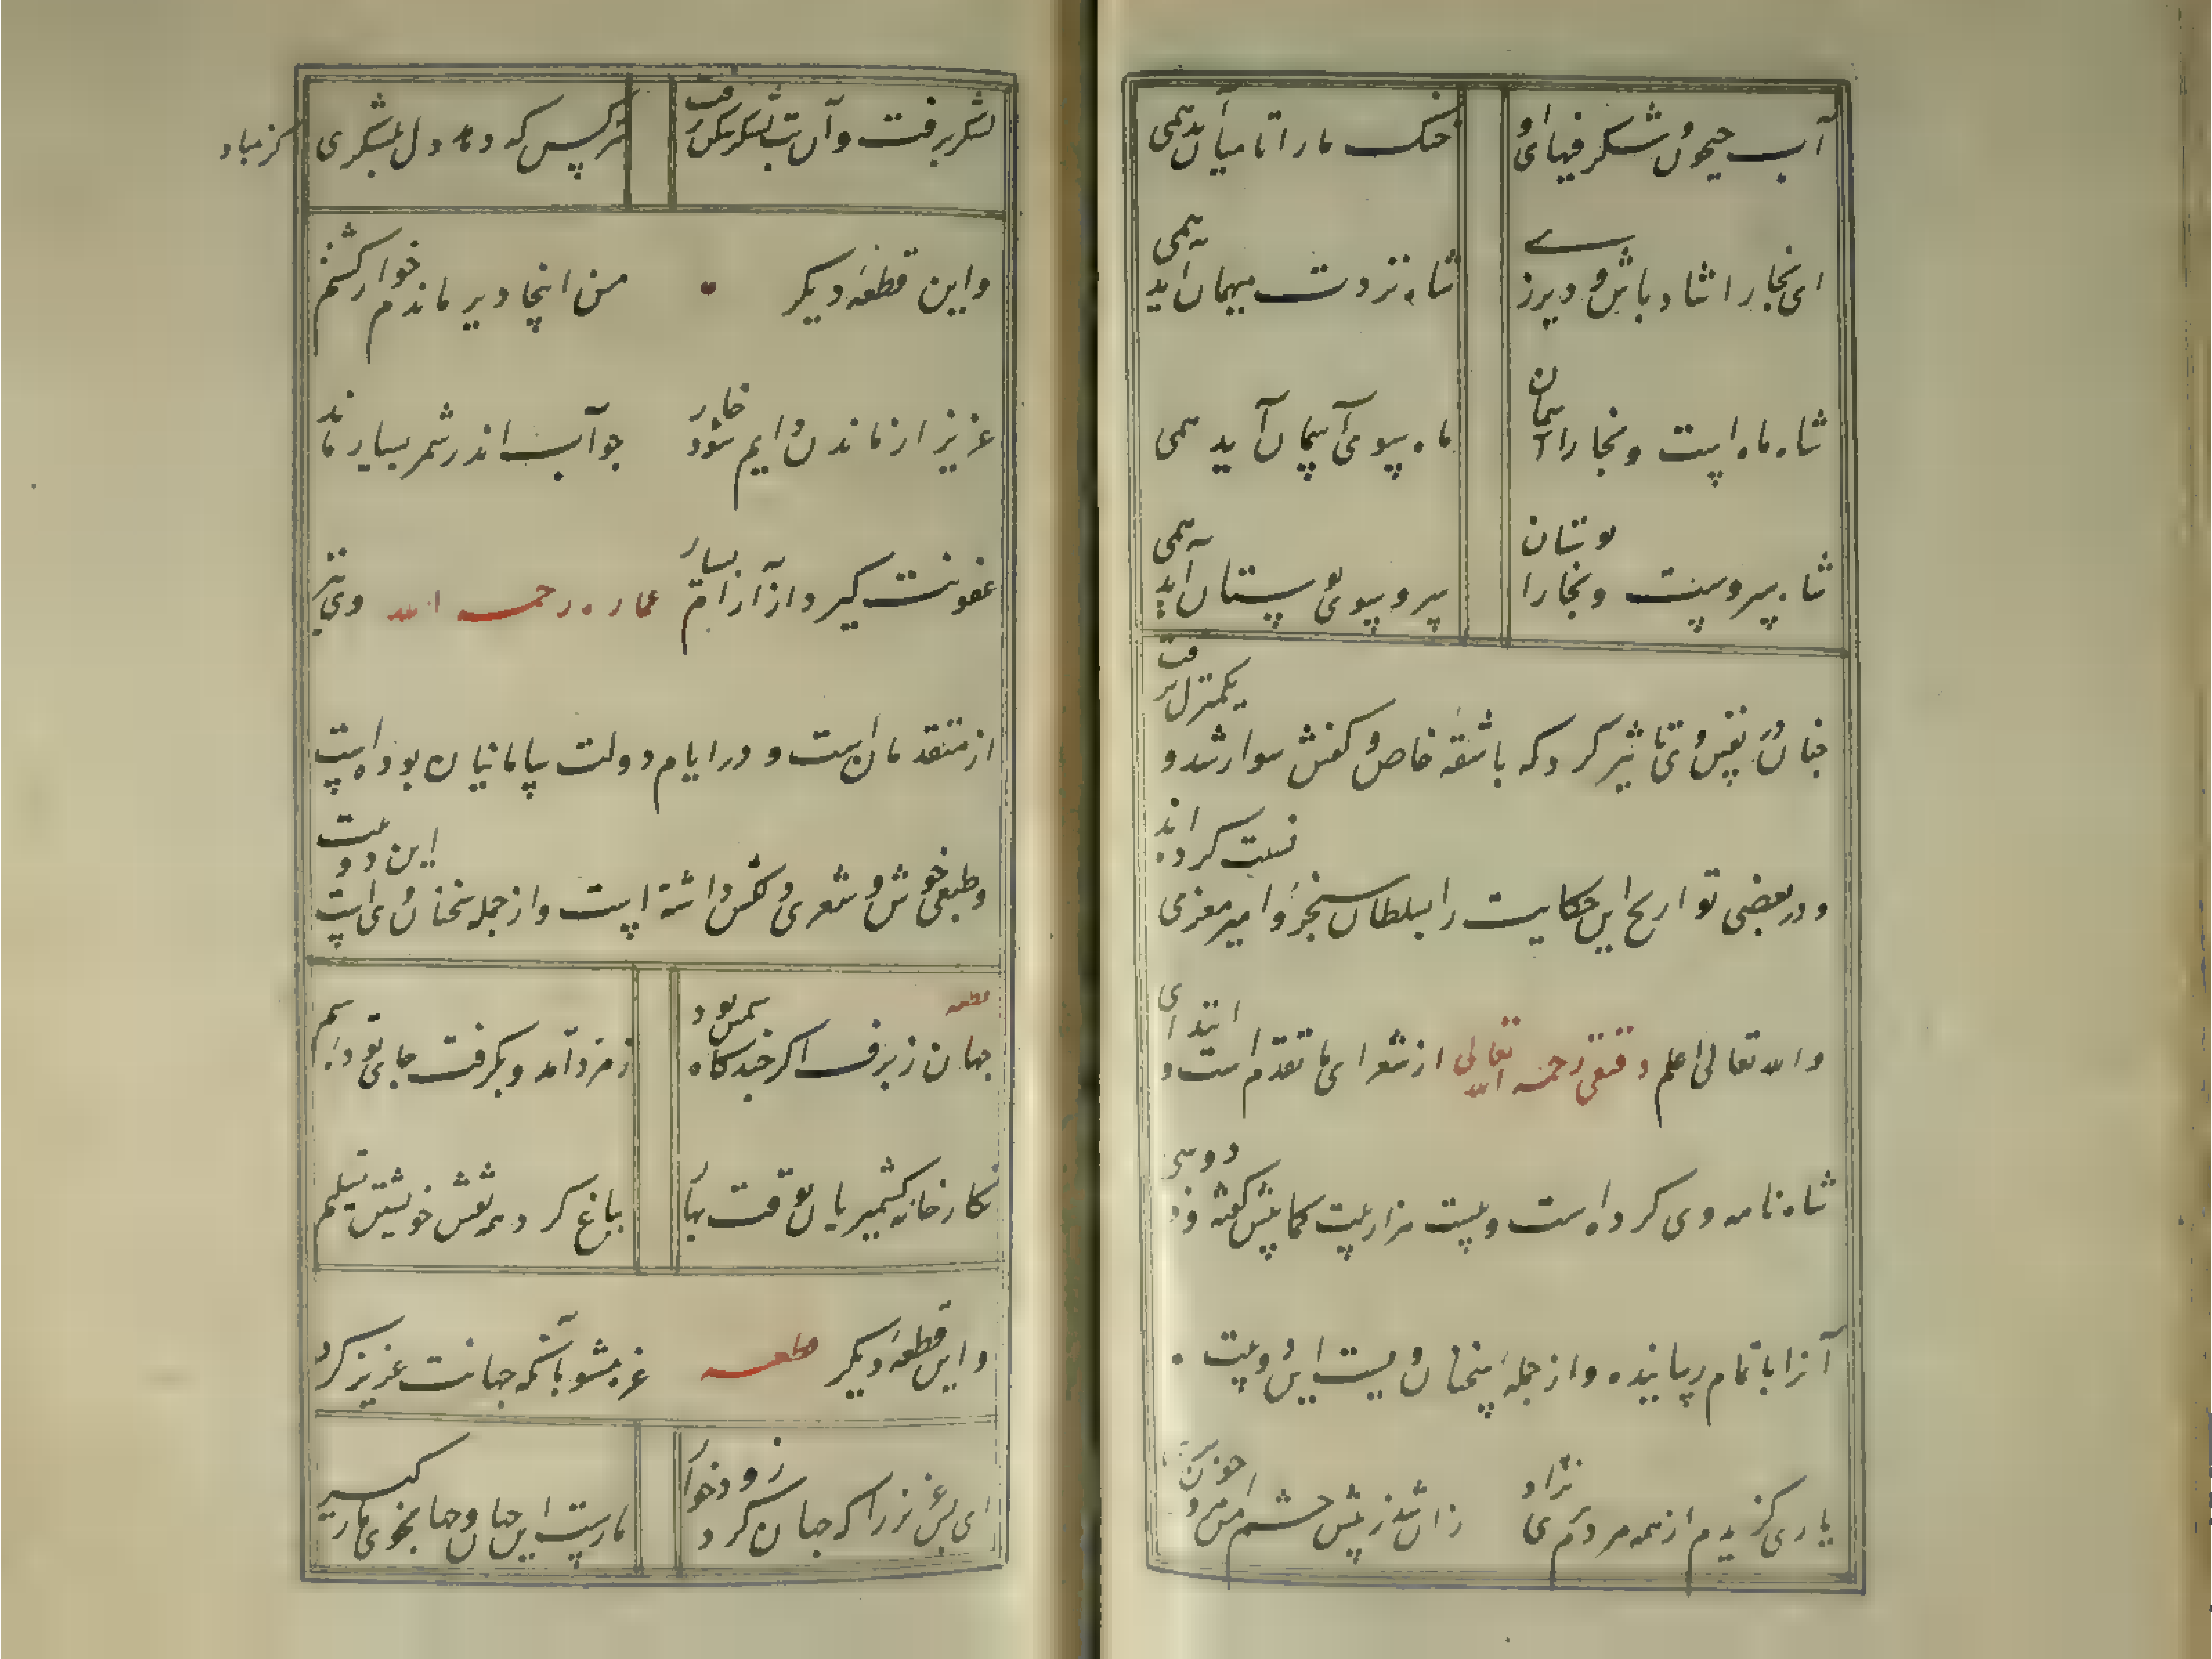 آب جیحون شگرفیهای او خنک ما را تا میان آید همی
ای بخارا شاد باش و دیر زی شاه نزدت میهمان آید همی
شاه ماه است و بخارا آسمان ماه سوی آسمان آید همی
شاه سرو است و بخارا بوستان سرو سوی بوستان آید همی
چنان در نفس وی تاثیر کرد که با شقه خاص و کفش سوار شد و یکمنزل برفت
و در بعضی تواریخ این حکایت را بسلطان سنجر و امیر معزی نسبت کرده اند
والله تعالی اعلم دقیقی رحمه الله تعالی از شعرای ما تقدم است و ابتدای
شاه نامه وی کرده است و بیست هزار بیت کمابیش گفته و فردوسی
آنرا باتمام رسانیده و از جمله سخنان ویست این دو بیت
یاری گزیدم از همه مردم پری نژاد زان شد ز پیش چشم من امروز چون پری
لشکر برفت و آن بت لشکرشکن برفت هرگز مباد کس که دهد دل بلشکری
و این قطعه دیگر من اینجا دیر ماندم خوار گشتم
عزیز از ماندن دایم شود خوار چو آب اندر شمر بسیار ماند
عفونت گیرد از آرام بسیار عماره رحمه الله وی نیز
از متقدمان است و در ایام دولت سامانیان بوده است
و طبعی خوش و شعری دلکش داشته است و از جمله سخنان وی است این دو بیت
قطعه جهان ز برف اگر چندگاه سیمین بود زمرد آمد و بگرفت جای توده سیم
نگارخانه کشمیریان بوقت بهار بباغ کرد همه نقش خویشتن تسلیم
و این قطعه دیگر قطعه غره مشو بآنکه جهانت عزیز کرد
ای بس عزیز را که جهان کرد زود خوار مارست این جهان و جهانجوی مارگیر